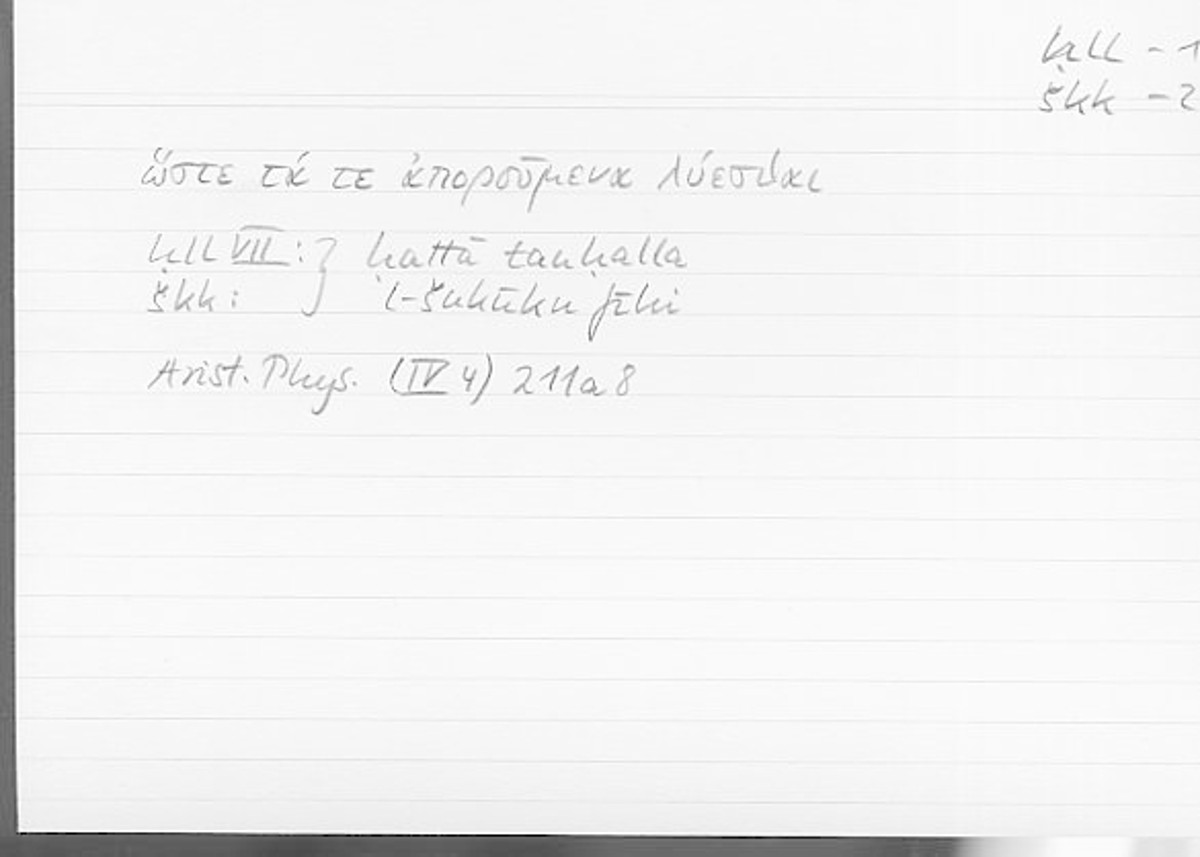 ḥll - 1
škk - 2
ὥστε τά τε ἀπορούμενα λύεσθαι
ḥll VII: } ḥattā tanḥalla
škk: l-šukūku fīhi
Arist. Phys. (IV 4) 211a8